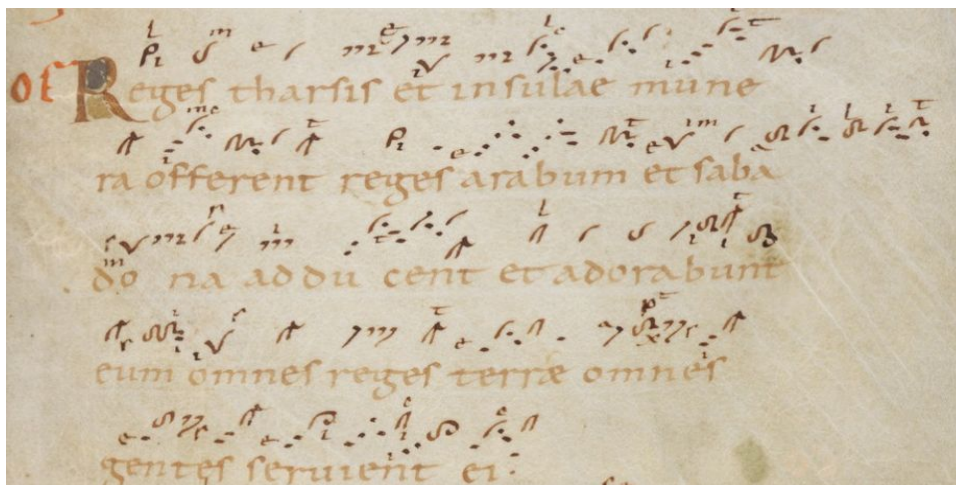 OF Reges tharsis et insulae mune
ra offerent reges arabum et saba
do na addu cent et adorabunt
eum omnes reges terræ omnes
gentes seruient ei